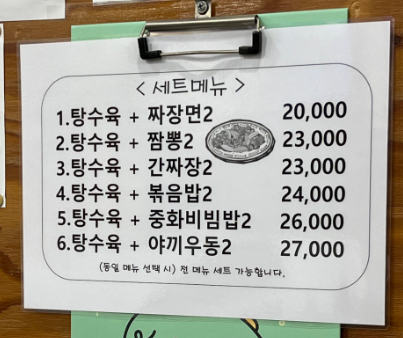 < 세트메뉴 >
1.탕수육 + 짜장면2 20,000
2.탕수육 + 짬뽕2 23,000
3.탕수육 + 간짜장2 23,000
4.탕수육 + 볶음밥2 24,000
5.탕수육 + 중화비빔밥2 26,000
6.탕수육 + 야끼우동2 27,000
(동일 메뉴 선택 시) 전 메뉴 세트 가능합니다.